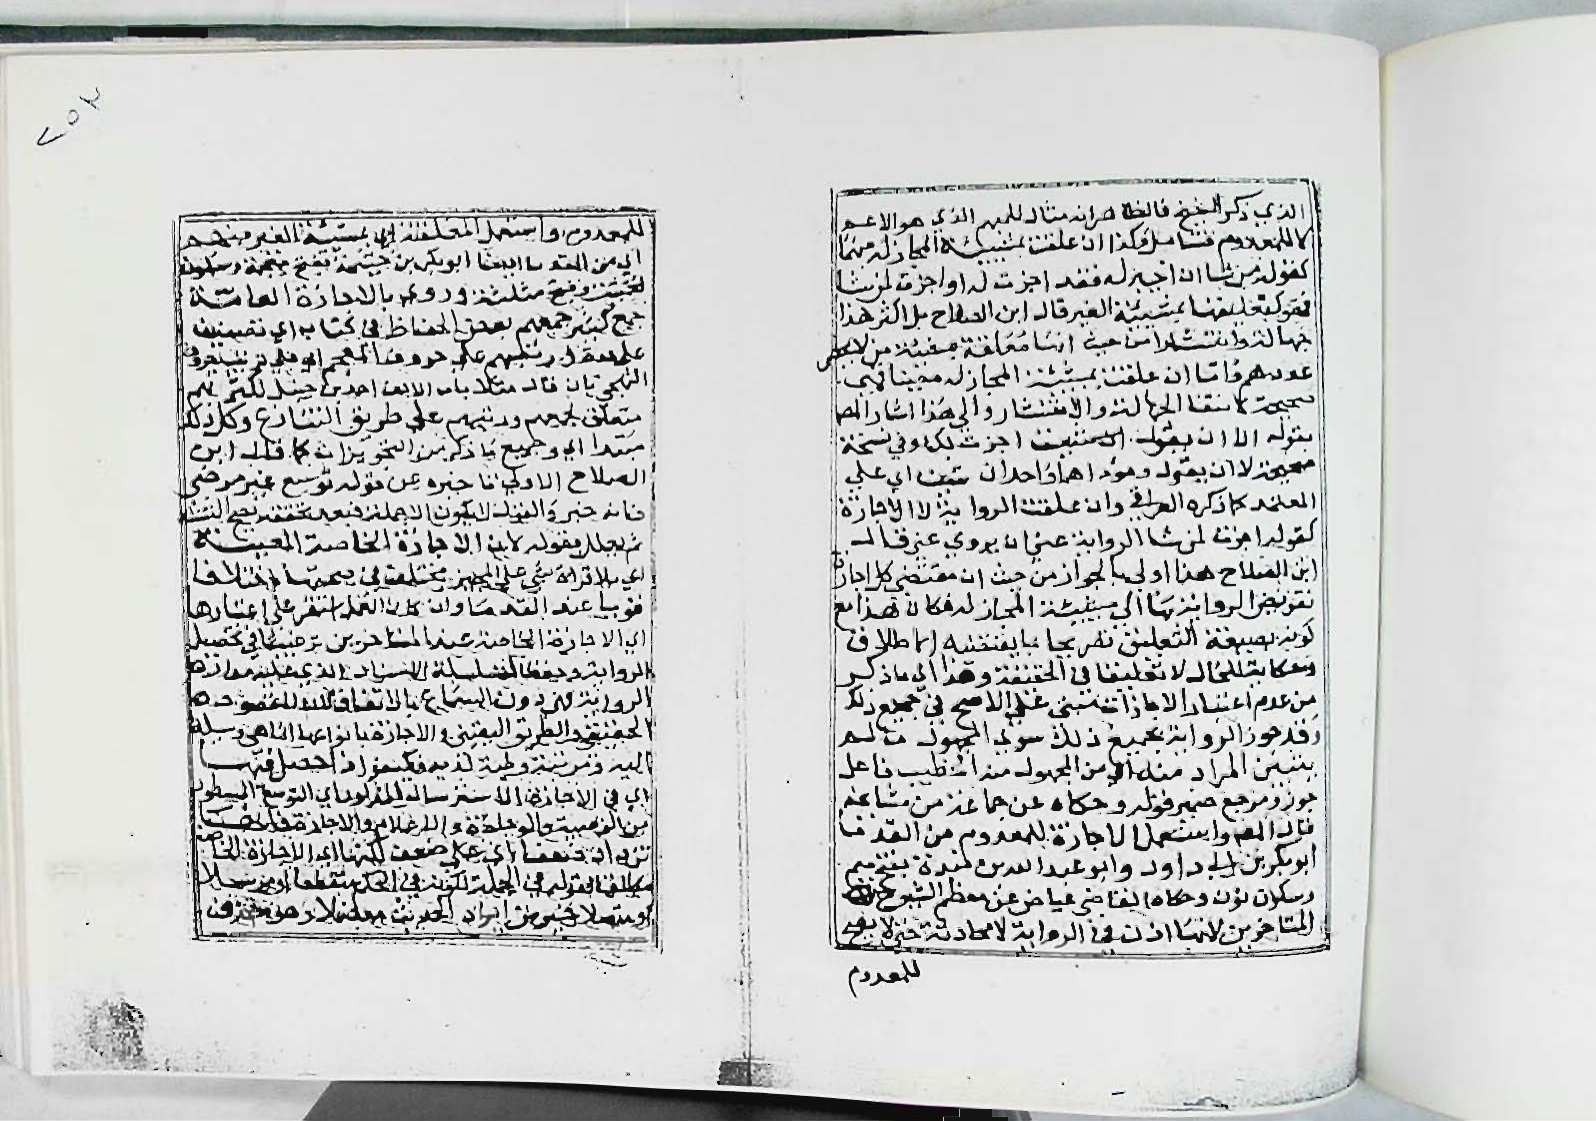 الذي ذكر الشيخ فالظاهر انه مثال للمبهم الذي هو الاعم
لا للمعدوم فتامل وكذا ان علقت بمشيئة المجاز له مبهما
كقوله من شا ان اجيز له فقد اجزت له او اجزت لمن شا
فهو كتعليقها بمشيئة الغير قال ابن الصلاح بل اكثر هذا
جهالة وانتشارا من حيث انها معلقة بمشيئة من لا يحصر
عددهم واما ان علقت بمشيئة المجاز له معينا فهي
صحيحة لانتفا الجهالة والانتشار والي هذا اشار المص
بقوله الا ان يقول ان شئت اجزت لك وفي نسخة
صحيحة لا ان يقول ومؤداهما واحد ان شئت اي علي
المعتمد كما ذكره العراقي وان علقت الرواية لا الاجازة
كقوله اجزت لمن شا الرواية عني ان يروي عني قال
ابن الصلاح هذا اولي بالجواز من حيث ان مقتضي كل اجازة
تفويض الرواية بها الي مشيئة المجاز له فكان هذا مع
كونه بصيغة التعليق تصريحا بما يقتضيه الاطلاق
وحكاية للحال لا تعليقا في الحقيقة وهذا اي ما ذكر
من عدم اعتبار الاجازات مبني علي الاصح في جميع ذلك
وقد جوز الرواية بجميع ذلك سوي المجهول ما لم
يتبين المراد منه اي من المجهول منه الخطيب فاعل
جوز ومرجع ضمير قوله وحكاه عن جماعة من مشايخه
قال المص واستعمل الاجازة للمعدوم من القدما
ابو بكر بن ابي داود وابو عبد الله بن مندة بفتح ميم
وسكون نون وحكاه القاضي عياض عن معظم الشيوخ
المتاخرين لانها اذن في الرواية لا محادثة حتي لا يصح
للمعدوم
للمعدوم واستعمل المعلقة اي بمشيئة الغير منهم
اي من القدما ايضا ابو بكر بن خيثمة بفتح معجمة وسكون
تحتية وفتح مثلثة وروي بالاجازة العامة
جمع كثير جمعهم بعض الحفاظ في كتاب اي تصنيف
علي حدة ورتبهم علي حروف المعجم اي علي ترتيب حروف
التهجي بان قال مثلا باب الالف احمد بن حنبل لكثرتهم
متعلق بجمعهم ورتبهم علي طريق التنازع وكل ذلك
مبتدا اي وجميع ما ذكر من التجويزات كما قال ابن
الصلاح الاولي تاخيره عن قوله توسع غير مرضي
فانه خبره والقول لا يكون الا جملة فبعد تحققه يصح التشبيه
ثم يعلل بقوله لان الاجازة الخاصة المعينة
اي بلا قراة شي علي المجيز مختلف في صحتها اختلافا
قويا عند القدما وان كان العمل استقر علي اعتبارها
اي الاجازة الخاصة عند المتاخرين ترغيبا في تحصيل
الرواية وحفظا لسلسلة الاسناد الذي عليه مدار
الرواية فهي دون السماع بالاتفاق لان المقصود
الحقيقي والطريق اليقيني والاجازة بانواعها انما هي وسيلة
اليه ومرتبة لديه فكيف اذا حصل فيها
اي في الاجازة الاسترسال المذكور اي التوسع المسطور
من الوصية والوجادة والاعلام والاجازة فانها
تزداد ضعفا اي علي ضعف لكنها اي الاجازة الخاصة
مطلقا بقوله في الجملة لكونه في الحكم منقطعا او مرسلا
او متصلا خير من ايراد الحديث معضلا وهو معروف
٢٥٢